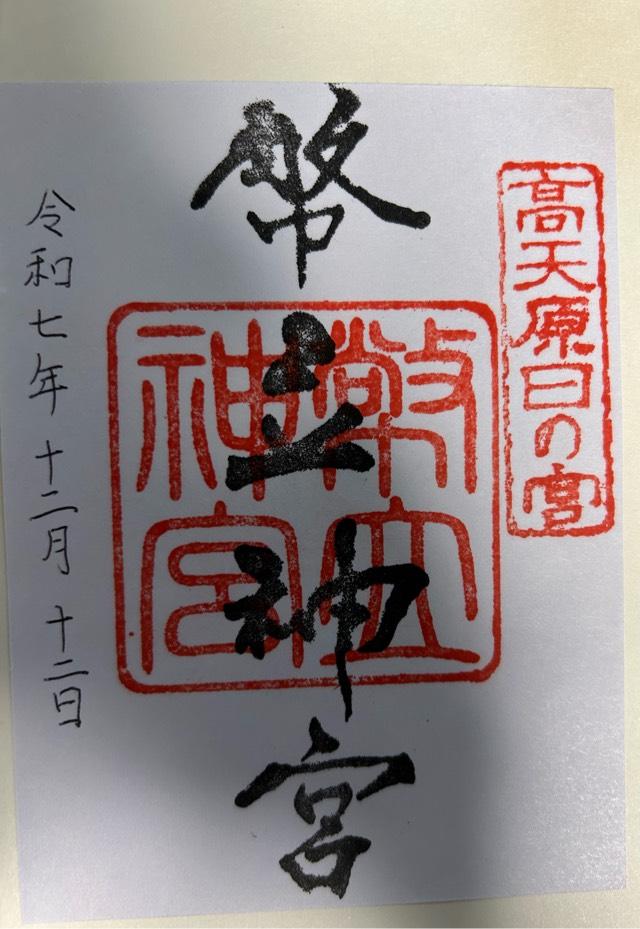 高天原日の宮
幣立神宮
幣立神宮
令和七年十二月十二日